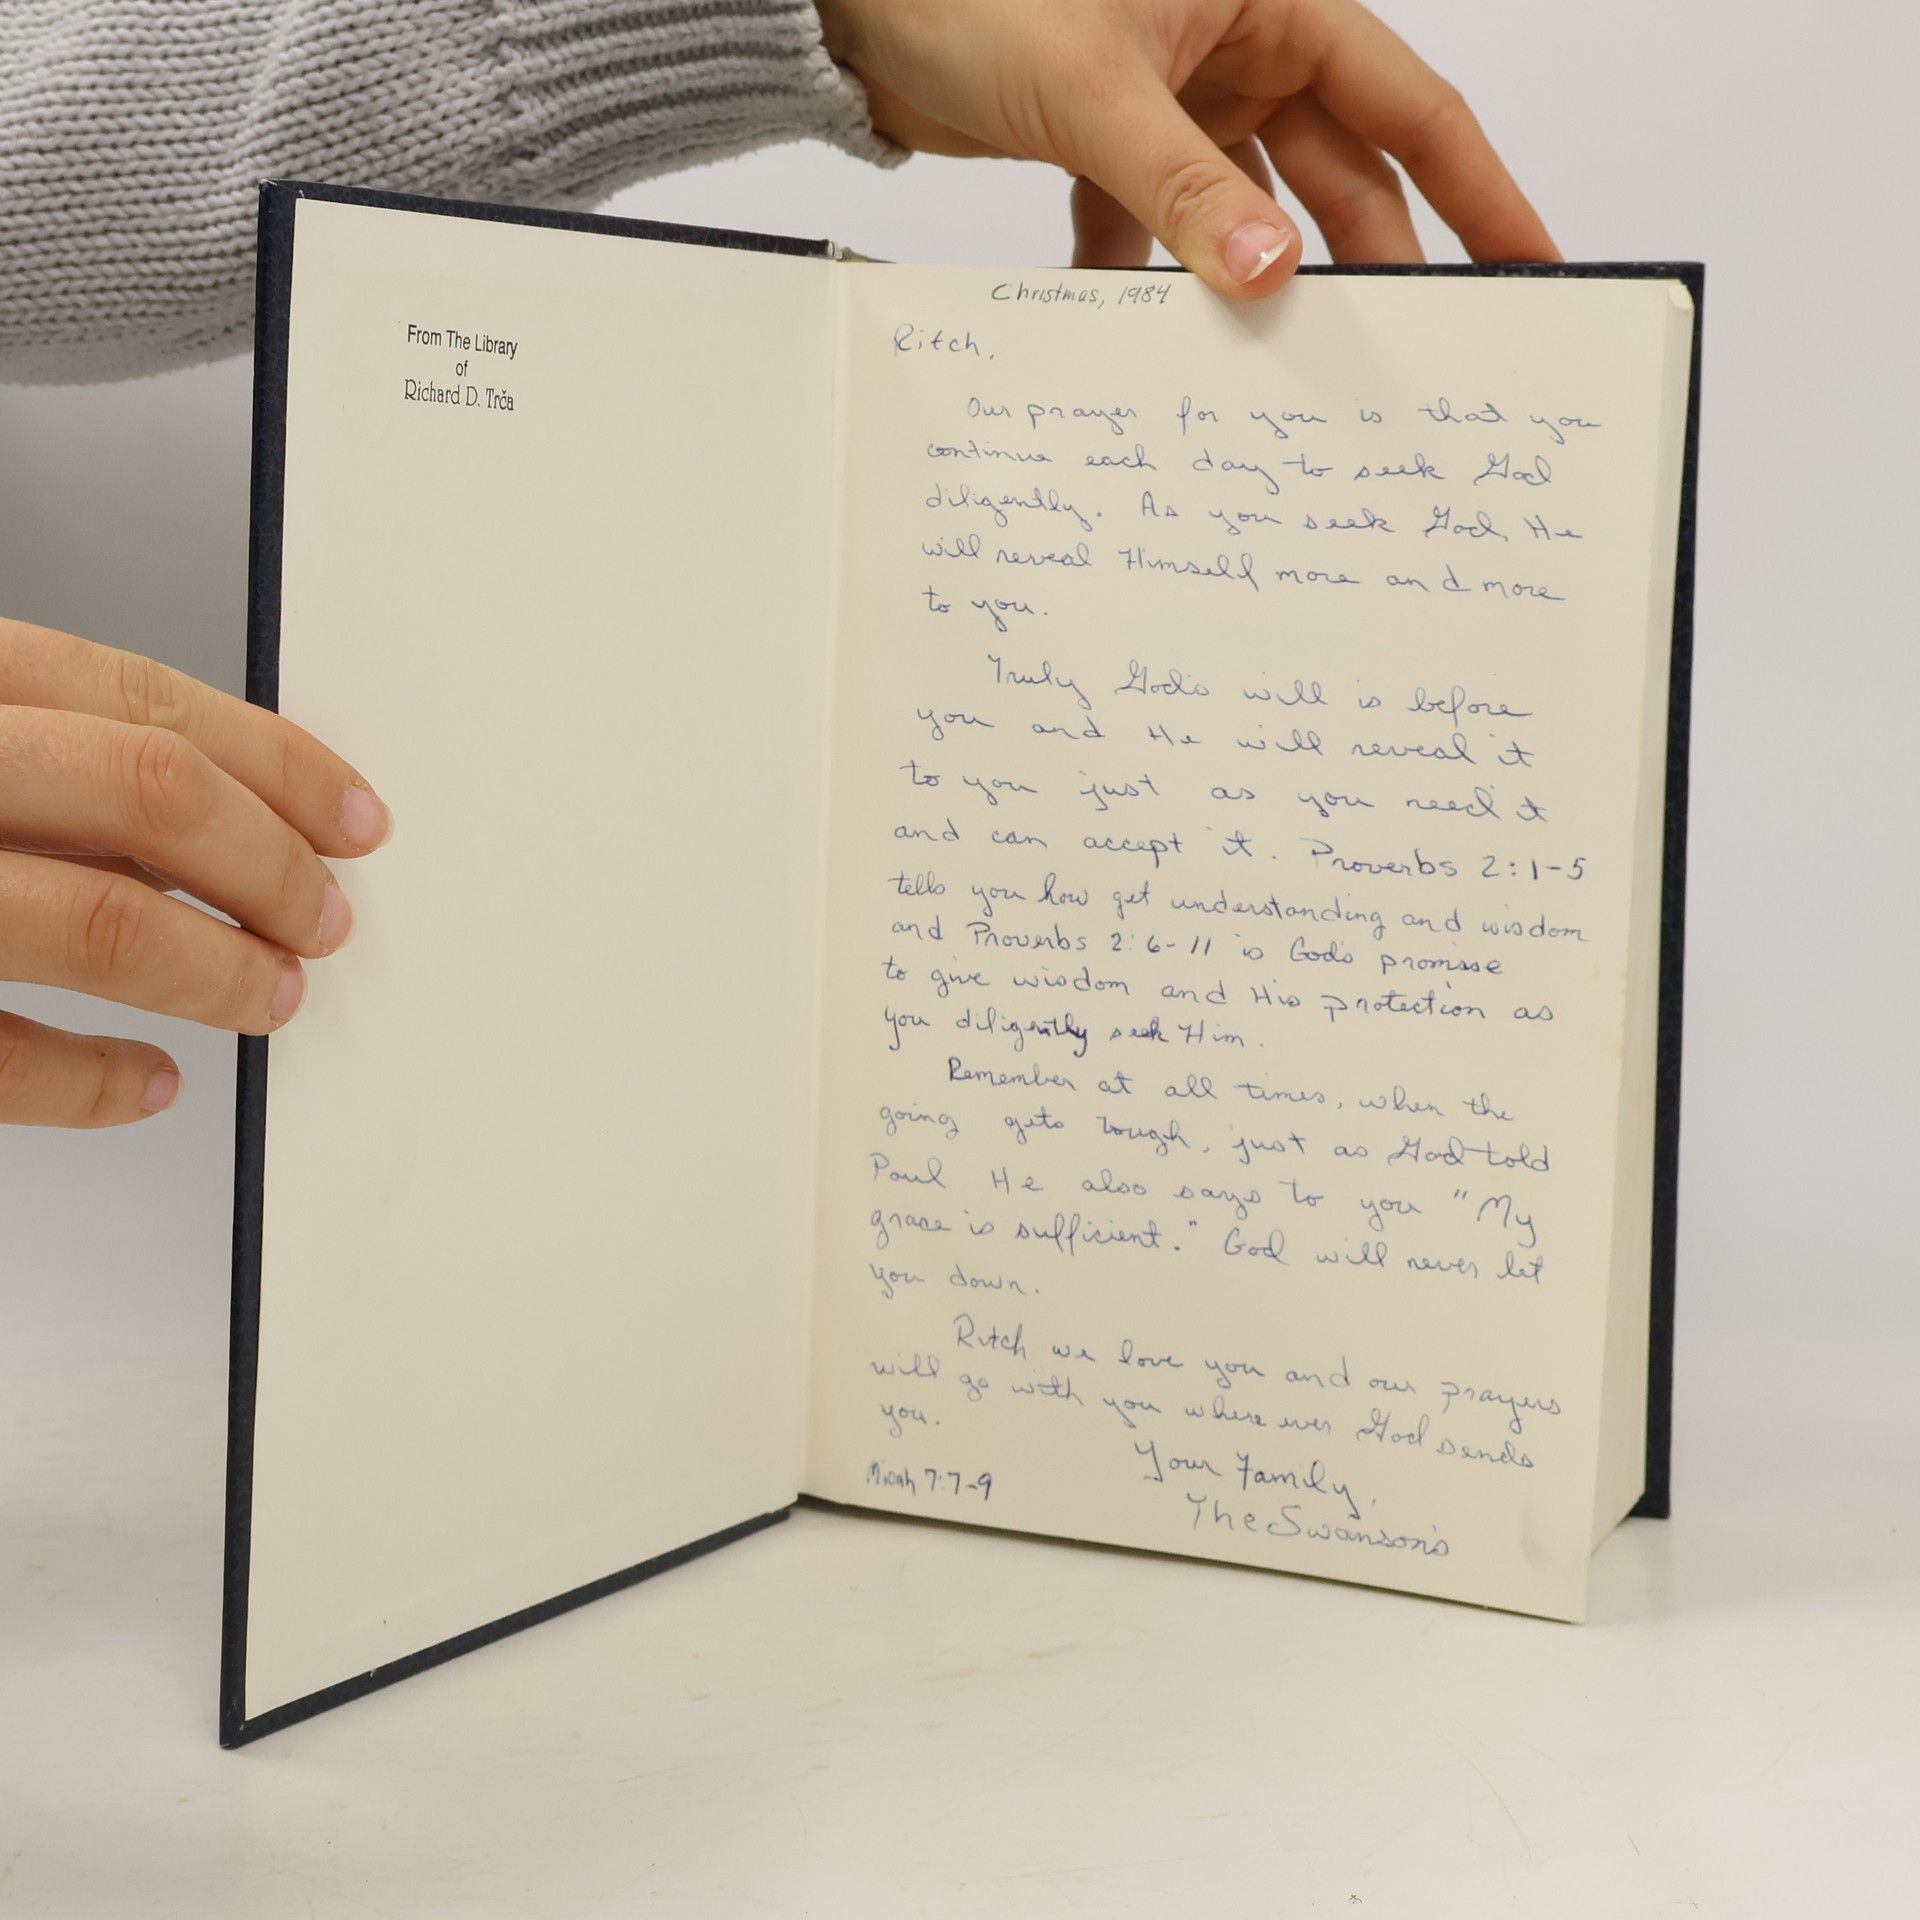 From The Library
of
Richard D. Trča
Christmas, 1984
Ritch,
Our prayer for you is that you
continue each day to seek God
diligently. As you seek God, He
will reveal Himself more and more
to you.
Truly God's will is before
you and He will reveal it
to you just as you need it
and can accept it. Proverbs 2:1-5
tells you how get understanding and wisdom
and Proverbs 2:6-11 is God's promise
to give wisdom and His protection as
you diligently seek Him.
Remember at all times, when the
going gets rough, just as God told
Paul He also says to you "My
grace is sufficient." God will never let
you down.
Ritch we love you and our prayers
will go with you where ever God sends
you.
Your Family,
The Swanson's
Micah 7:7-9